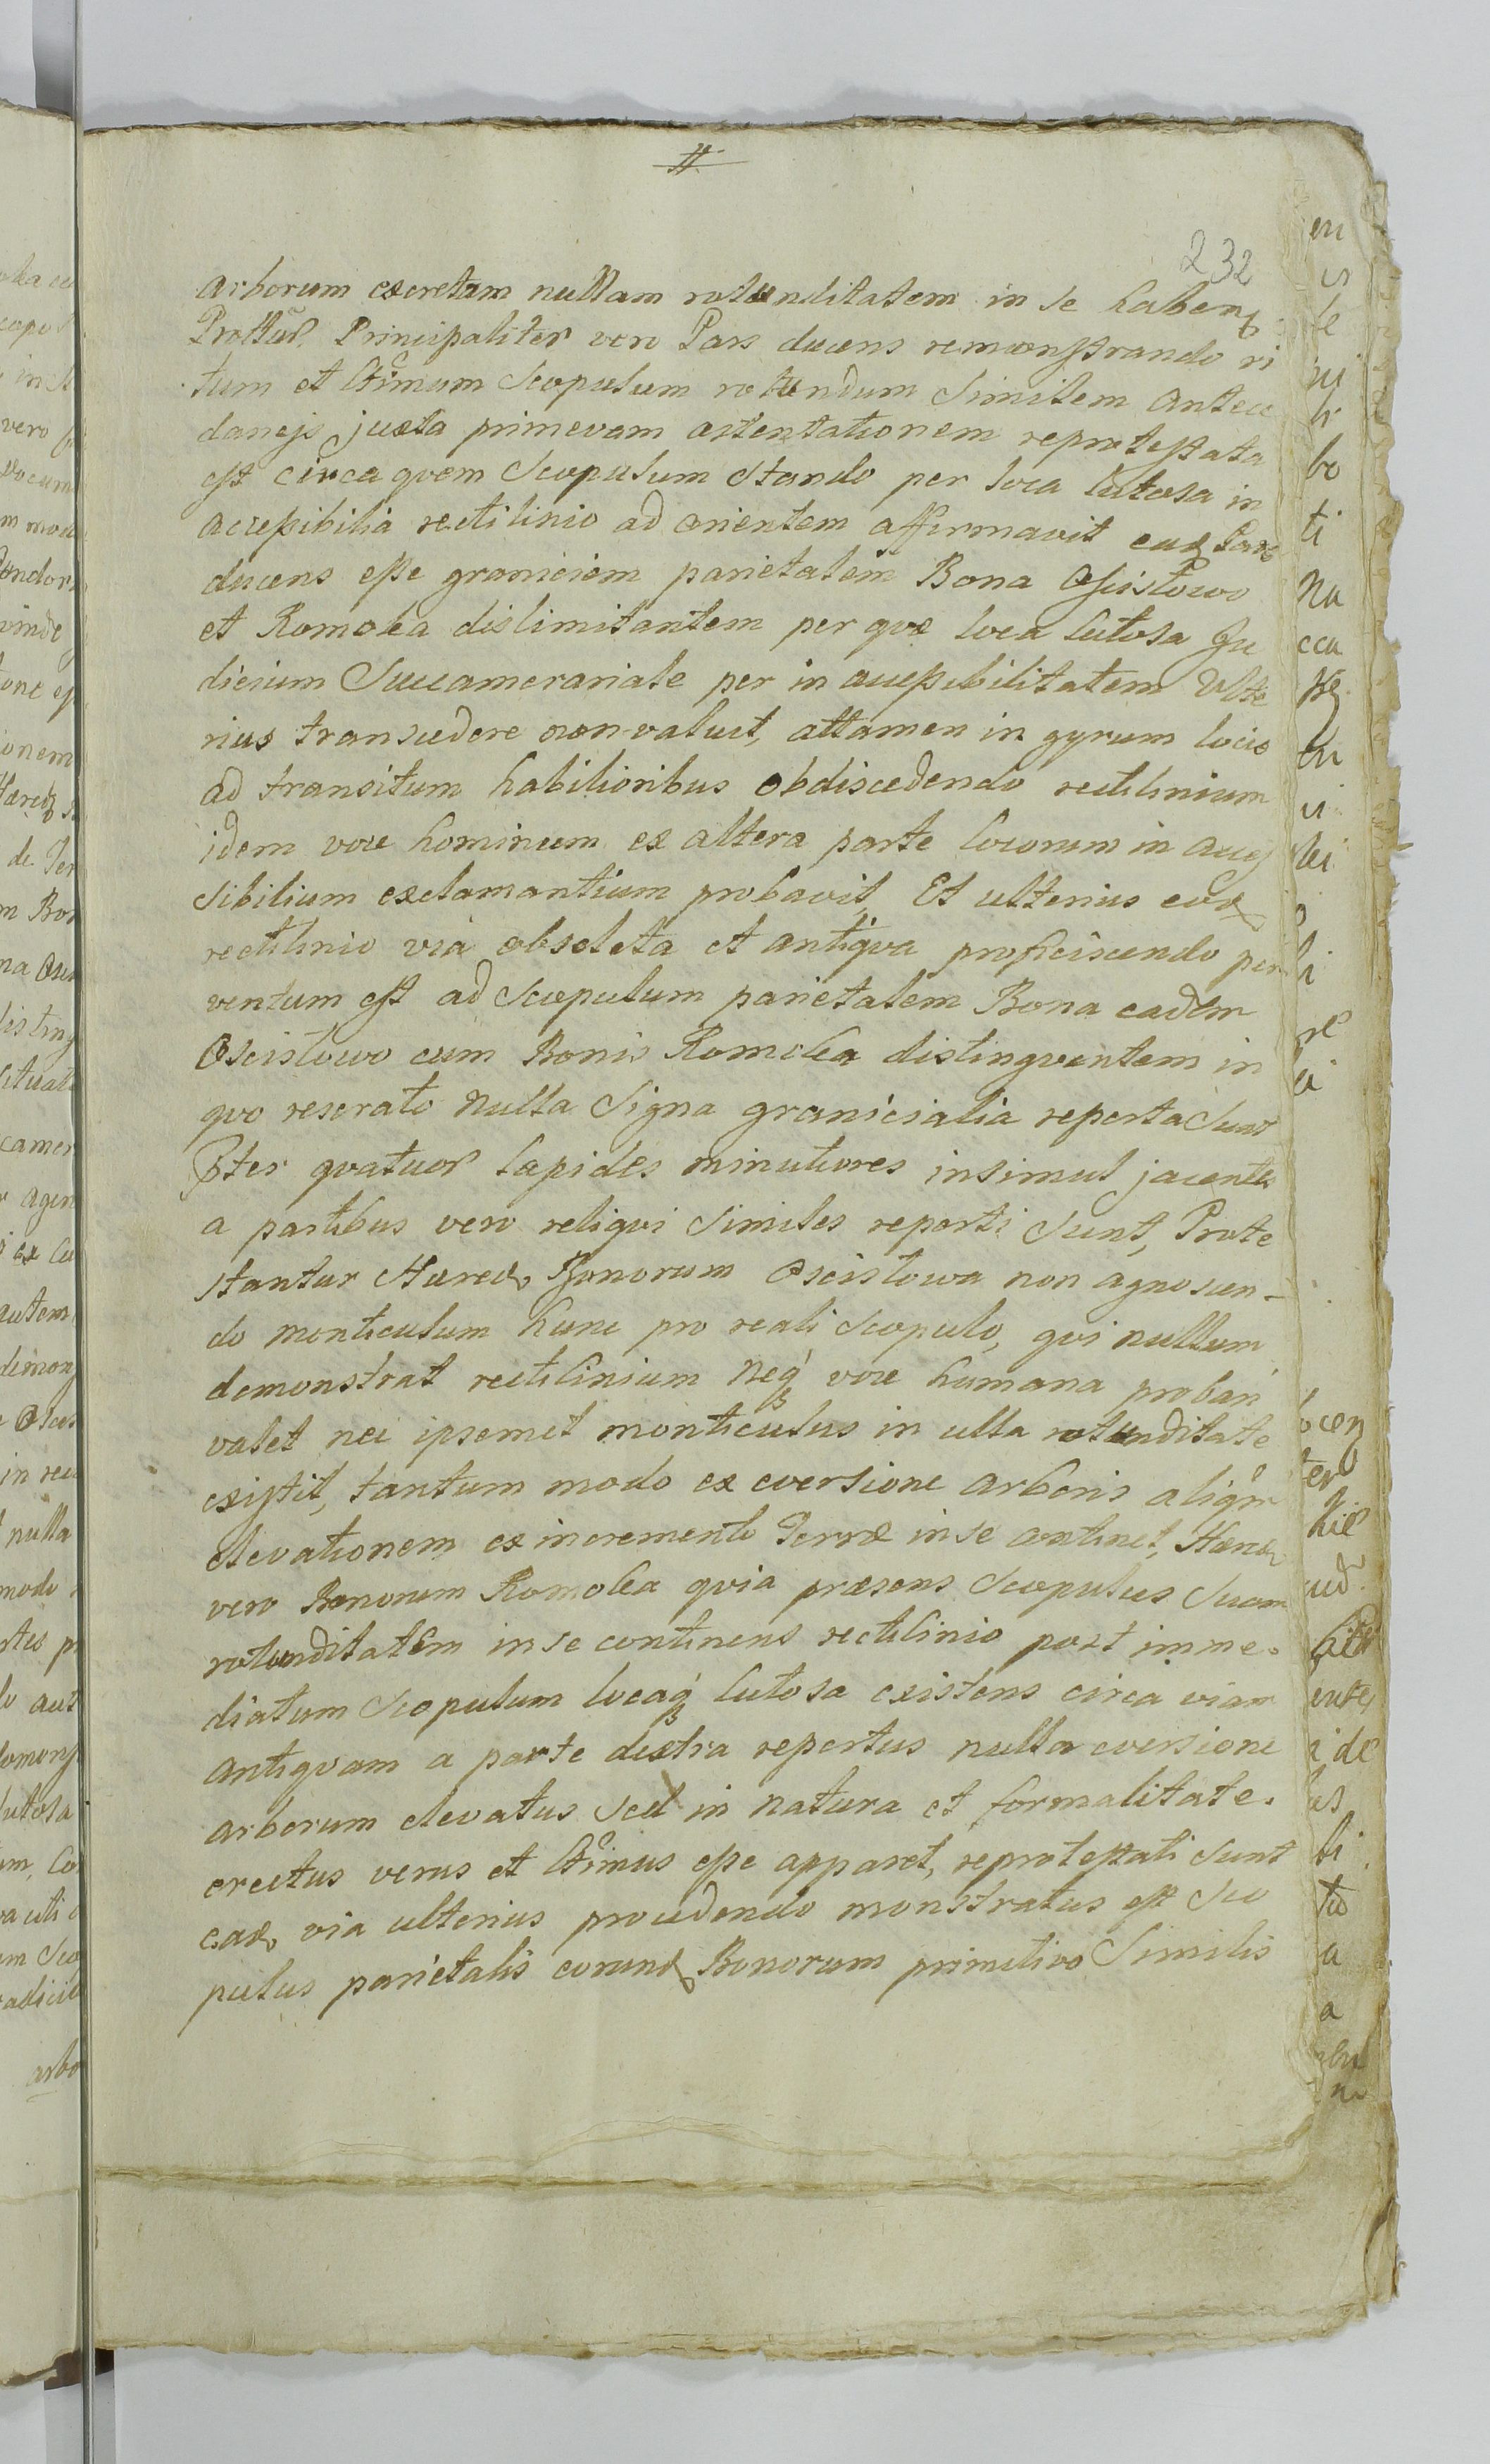 232
arborum excretam nullam rotunditatem in se haben
Principaliter vero Pars ducens remonstrando ri
tum et Ltimum Scopulum rotundum Similem Antece
danejs juxta primevam ostentationem reprotestata
est circa qvem Scopulum Stando per loca lutosa in
accessibilia rectilinio ad orientem affirmavit ead Pars
ducens esse graniciem parietalem Bona Oscislowo
et Romoka dislimitantem per qvæ loca lutosa Ju
dicium Succamerariale per in accessibilitatem Ulte
rius transcedere non valuit, attamen in gyrum locis
ad transitum habilioribus obdiscedendo rectilinium
idem voce hominum ex altera parte locorum in acces
sibilium exclamantium probavit, Et ulterius eod
rectilinio via obsoleta et antiqva proficiscendo per
ventum est ad Scopulum parietalem Bona eadem
Oscislowo cum Bonis Romoka distingventem in
qvo reserato nulla Signa granicialia reperta Sunt
Pter qvatuor lapides minutiores insimul jacentes
a partibus vero reliqvi Similes reperti Sunt, Prote
stantur Hæred, Bonorum Oscislowa non agnoscen-
do monticulum hunc pro reali Scopulo, qvi nullum
demonstrat rectilinium neq voce humana probari
valet nec ipsemet monticulus in ulla rotunditate
existit, tantum modo ex eversione arboris aliqm
elevationem ex incremento Terræ in se continet, Hæred
vero Bonorum Romoka qvia præsens Scopulus Suam
rotunditatem in se continens rectilinio post imme-
diatum Scopulum locaq lutosa existens circa viam
antiqvam a parte dextra repertus nulla eversione
arborum elevatus Sed in natura et formalitate
erectus verus et Ltimus esse apparet, reprotestati Sunt
ead, via ulterius procedendo monstratus est Sco
pulus parietalis eorund Bonorum primitivo Similis